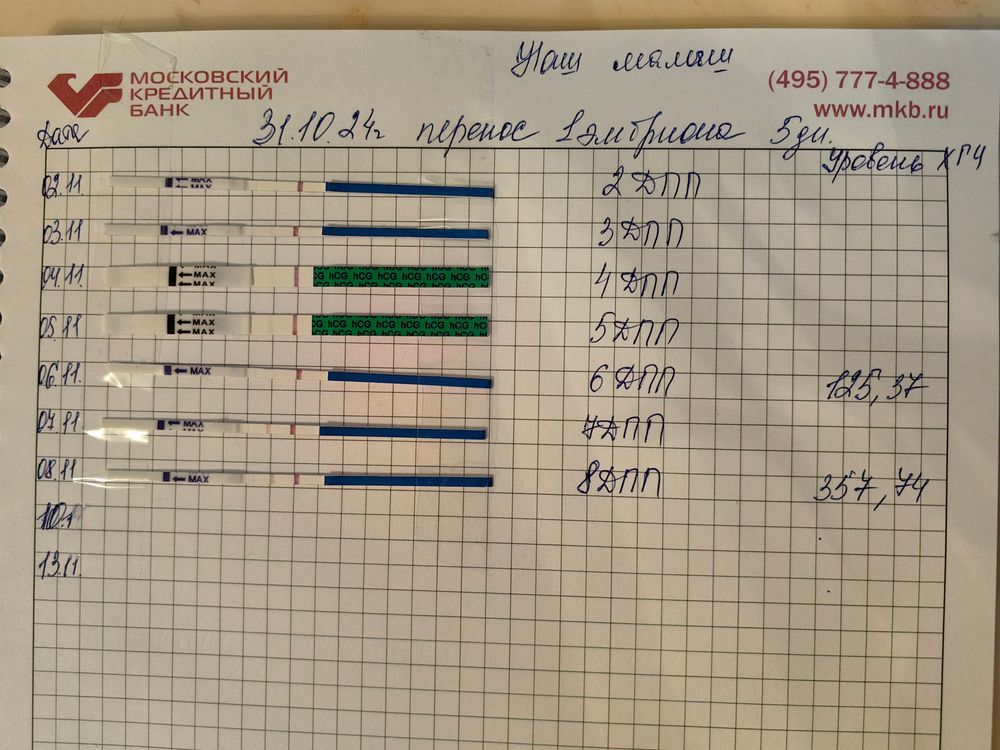 Наш малыш
МОСКОВСКИЙ
КРЕДИТНЫЙ
БАНК
(495) 777-4-888
www.mkb.ru
Дата
31.10.24г перенос 1 эмбриона 5дн.
Уровень ХГЧ
02.11 MAX MAX 2 ДПП
03.11 MAX 3 ДПП
04.11 MAX MAX hCG hCG hCG hCG hCG hCG 4 ДПП
05.11 MAX MAX hCG hCG hCG hCG hCG hCG 5 ДПП
06.11. MAX 6 ДПП 125,37
07.11 MAX 7 ДПП
08.11 MAX 8 ДПП 357,74
13.11.